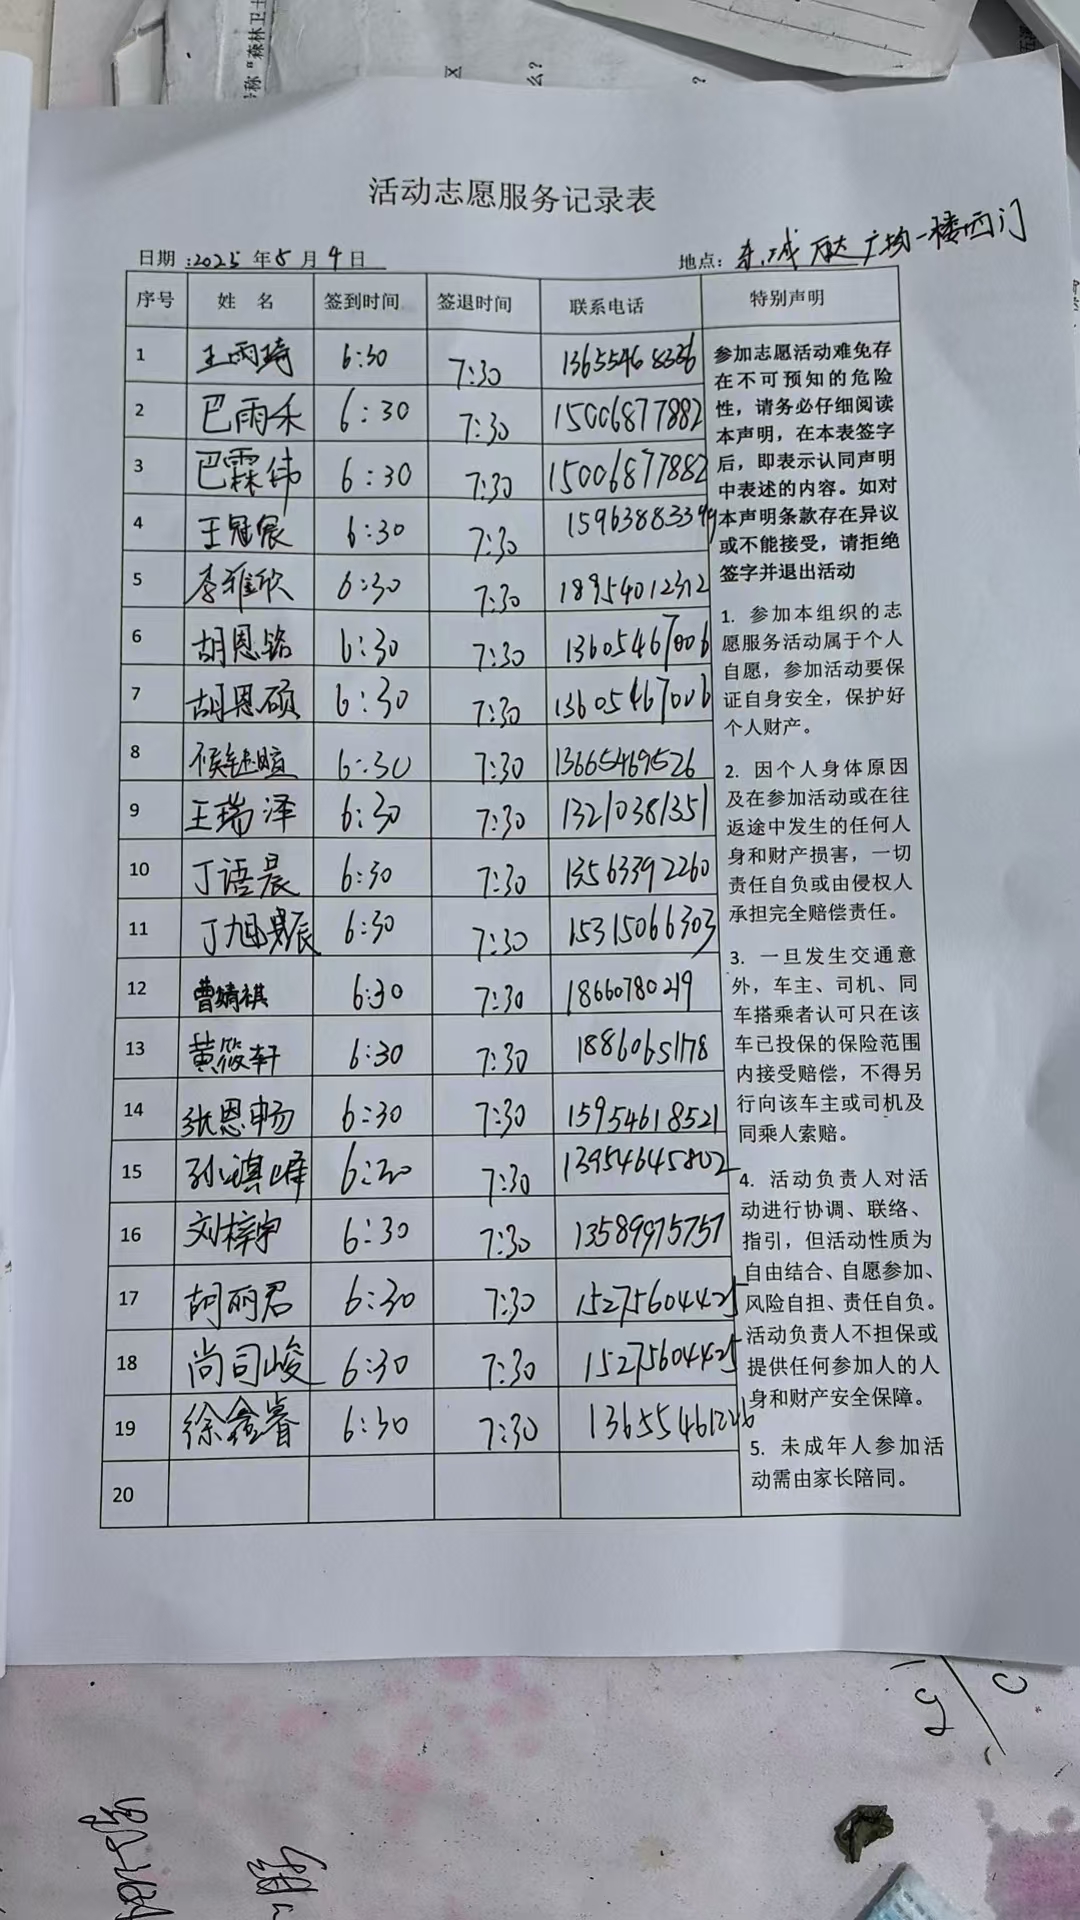 活动志愿服务记录表
日期:2025 年 5 月 4 日 地点: 东城万达广场一楼西门
序号 姓 名 签到时间 签退时间 联系电话 特别声明
1 王雨琦 6:30 7:30 13655468336
2 巴雨禾 6:30 7:30 15006877882
3 巴霖伟 6:30 7:30 15006877882
4 王冠宸 6:30 7:30 15963883399
5 李雅欣 6:30 7:30 18954012312
6 胡恩铭 6:30 7:30 13605467006
7 胡恩硕 6:30 7:30 13605467006
8 6:30 7:30 13665469526
9 王瑞泽 6:30 7:30 13210381351
10 丁语晨 6:30 7:30 13563392260
11 丁旭 6:30 7:30 15315066303
12 曹婧祺 6:30 7:30 18660780219
13 黄筱轩 6:30 7:30 18860651178
14 张恩畅 6:30 7:30 15954618521
15 孙淇峰 6:30 7:30 13954645802
16 刘梓宇 6:30 7:30 13589975757
17 胡丽君 6:30 7:30 15275604425
18 尚司峻 6:30 7:30 15275604425
19 徐鑫睿 6:30 7:30 13655461226
20
参加志愿活动难免存
在不可预知的危险
性，请务必仔细阅读
本声明，在本表签字
后，即表示认同声明
中表述的内容。如对
本声明条款存在异议
或不能接受，请拒绝
签字并退出活动
1. 参加本组织的志
愿服务活动属于个人
自愿，参加活动要保
证自身安全，保护好
个人财产。
2. 因个人身体原因
及在参加活动或在往
返途中发生的任何人
身和财产损害，一切
责任自负或由侵权人
承担完全赔偿责任。
3. 一旦发生交通意
外，车主、司机、同
车搭乘者认可只在该
车已投保的保险范围
内接受赔偿，不得另
行向该车主或司机及
同乘人索赔。
4. 活动负责人对活
动进行协调、联络、
指引，但活动性质为
自由结合、自愿参加、
风险自担、责任自负。
活动负责人不担保或
提供任何参加人的人
身和财产安全保障。
5. 未成年人参加活
动需由家长陪同。